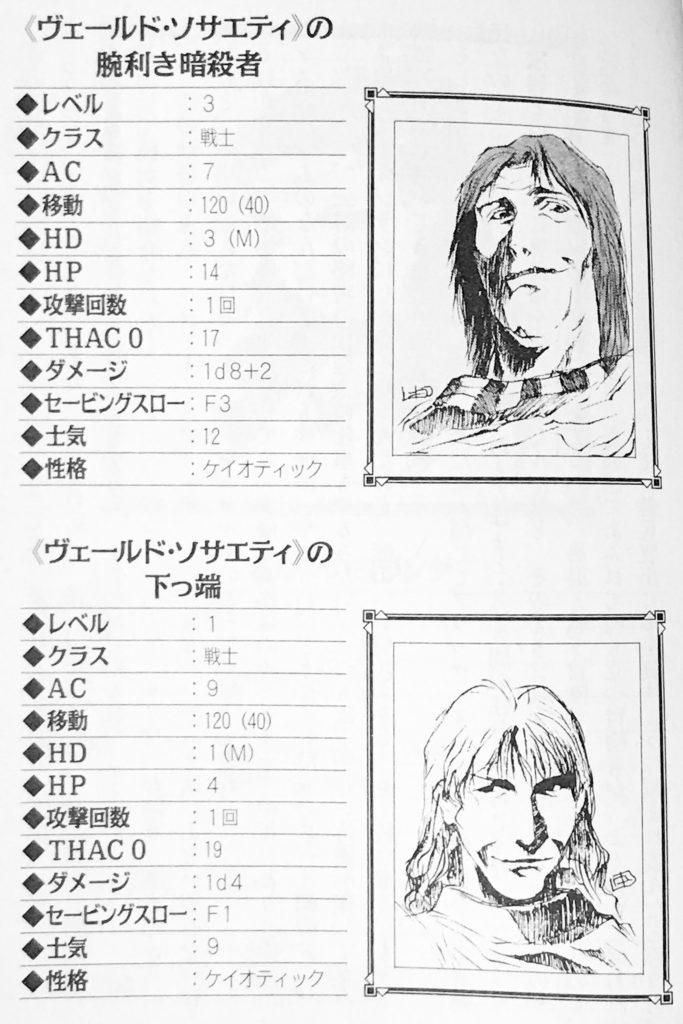 《ヴェールド・ソサエティ》の
腕利き暗殺者
◆レベル：3
◆クラス：戦士
◆AC：7
◆移動：120（40）
◆HD：3（M）
◆HP：14
◆攻撃回数：1回
◆THAC0：17
◆ダメージ：1d8+2
◆セービングスロー：F3
◆士気：12
◆性格：ケイオティック
《ヴェールド・ソサエティ》の
下っ端
◆レベル：1
◆クラス：戦士
◆AC：9
◆移動：120（40）
◆HD：1（M）
◆HP：4
◆攻撃回数：1回
◆THAC0：19
◆ダメージ：1d4
◆セービングスロー：F1
◆士気：9
◆性格：ケイオティック